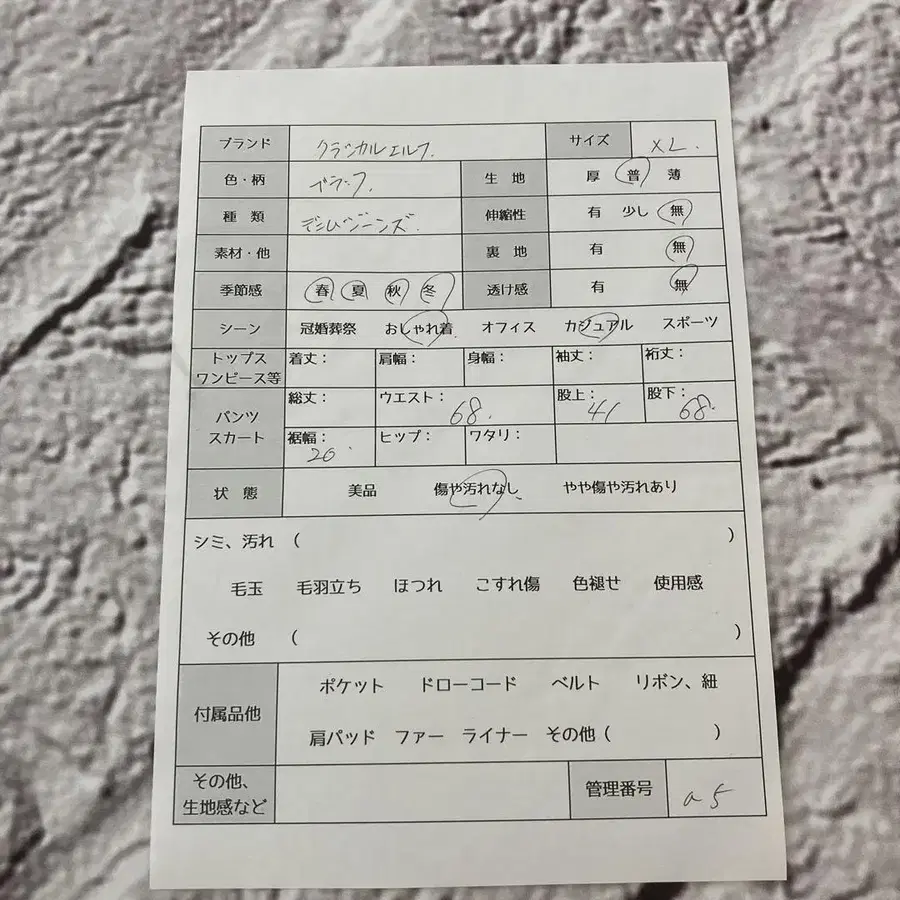 ブランド クラシカルエルフ. サイズ XL.
色・柄 ブラック. 生 地 厚 普 薄
種 類 デニムジーンズ. 伸縮性 有 少し 無
素材・他 裏 地 有 無
季節感 春 夏 秋 冬 透け感 有 無
シーン 冠婚葬祭 おしゃれ着 オフィス カジュアル スポーツ
トップス ワンピース等 着丈: 肩幅: 身幅: 袖丈: 裄丈:
パンツ スカート 総丈: ウエスト: 68. 股上: 41 股下: 68.
裾幅: 20. ヒップ: ワタリ:
状 態 美品 傷や汚れなし やや傷や汚れあり
シミ、汚れ ( )
毛玉 毛羽立ち ほつれ こすれ傷 色褪せ 使用感
その他 ( )
付属品他 ポケット ドローコード ベルト リボン、紐
肩パッド ファー ライナー その他 ( )
その他、 生地感など 管理番号 a5